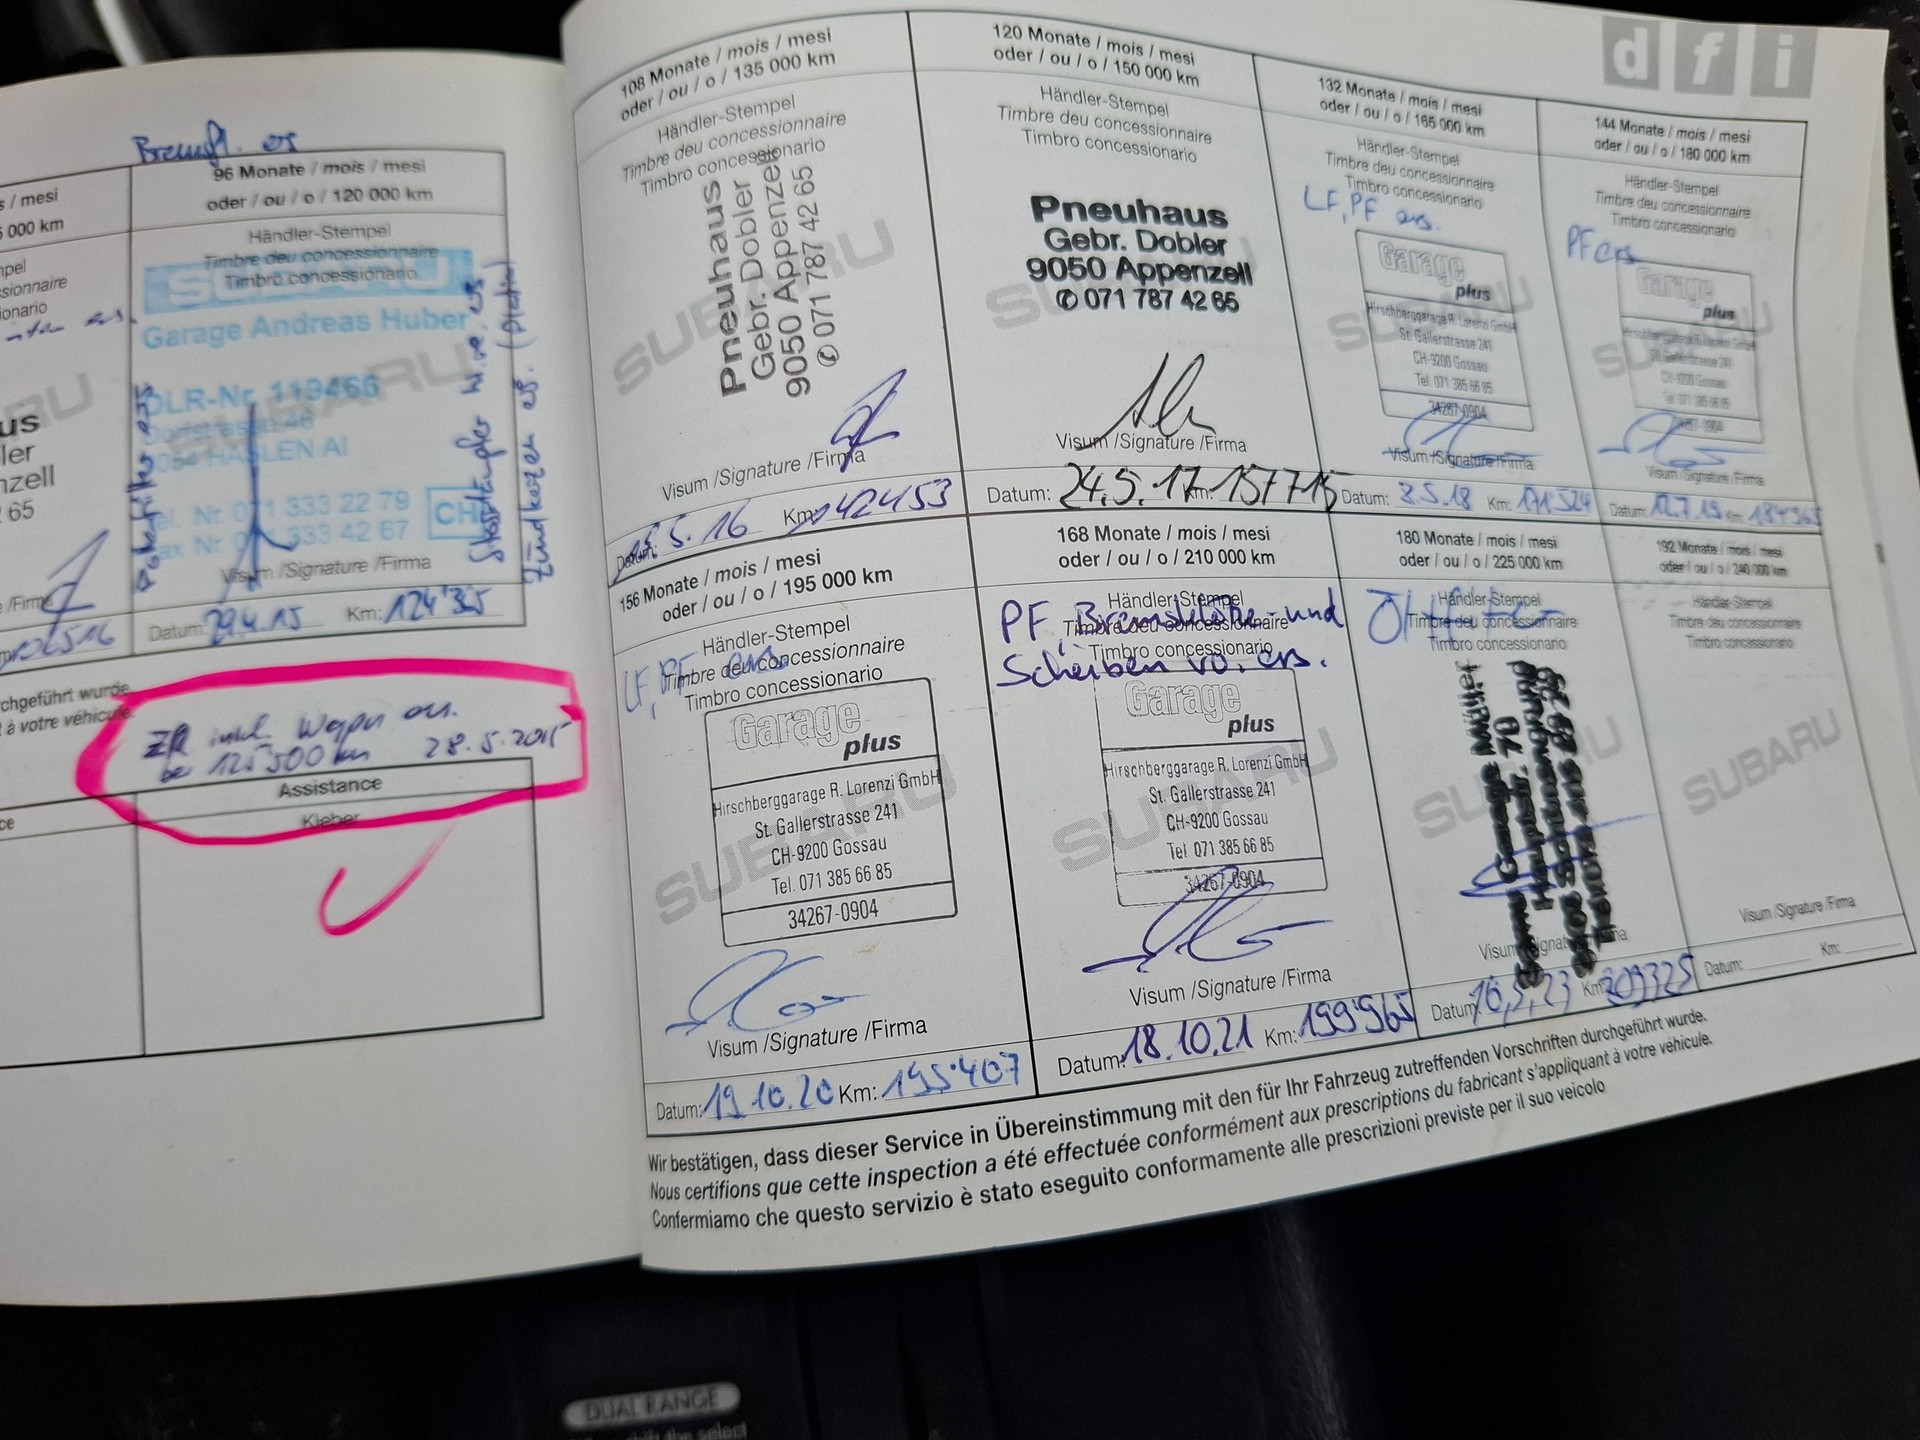 Bremsfl. ers
s / mesi
5 000 km
96 Monate / mois / mesi
oder / ou / o / 120 000 km
Händler-Stempel
Timbre deu concessionnaire
Timbro concessionario
SUBARU
Garage Andreas Huber
DLR-Nr. 113466
Dorfstrasse 46
9054 HASLEN AI
Tel. Nr. 071 333 22 79
Fax Nr. 071 333 42 67
CH
Zündkerzen ers. (Platin)
Visum /Signature /Firma
Datum: 29.4.15 Km: 124'325
chgeführt wurde.
à votre véhicule.
ZR inkl Wapu ers.
bei 125'500 km 28.5.2015
Assistance
Kleber
d f i
108 Monate / mois / mesi
oder / ou / o / 135 000 km
Händler-Stempel
Timbre deu concessionnaire
Timbro concessionario
Pneuhaus
Gebr. Dobler
9050 Appenzell
✆ 071 787 42 65
SUBARU
Visum /Signature /Firma
Datum: 5.16 Km: 142453
120 Monate / mois / mesi
oder / ou / o / 150 000 km
Händler-Stempel
Timbre deu concessionnaire
Timbro concessionario
Pneuhaus
Gebr. Dobler
9050 Appenzell
✆ 071 787 42 65
SUBARU
Visum /Signature /Firma
Datum: 24.5.17 Km: 157715
132 Monate / mois / mesi
oder / ou / o / 165 000 km
Händler-Stempel
Timbre deu concessionnaire
Timbro concessionario
LF, PF ers.
Garage
plus
Hirschberggarage R. Lorenzi GmbH
St. Gallerstrasse 241
CH-9200 Gossau
Tel. 071 385 66 85
34267-0904
SUBARU
Visum /Signature /Firma
Datum: 3.5.18 Km: 171'524
144 Monate / mois / mesi
oder / ou / o / 180 000 km
Händler-Stempel
Timbre deu concessionnaire
Timbro concessionario
PF ers
Garage
plus
Hirschberggarage R. Lorenzi GmbH
St. Gallerstrasse 241
CH-9200 Gossau
Tel. 071 385 66 85
34267-0904
SUBARU
Visum /Signature /Firma
Datum: 12.7.19 Km:
156 Monate / mois / mesi
oder / ou / o / 195 000 km
Händler-Stempel
Timbre deu concessionnaire
Timbro concessionario
LF, PF ers.
Garage
plus
Hirschberggarage R. Lorenzi GmbH
St. Gallerstrasse 241
CH-9200 Gossau
Tel. 071 385 66 85
34267-0904
SUBARU
Visum /Signature /Firma
Datum: 19.10.20 Km: 195'407
168 Monate / mois / mesi
oder / ou / o / 210 000 km
Händler-Stempel
Timbre deu concessionnaire
Timbro concessionario
PF, Bremsklötze und
Scheiben vo. ers.
Garage
plus
Hirschberggarage R. Lorenzi GmbH
St. Gallerstrasse 241
CH-9200 Gossau
Tel. 071 385 66 85
34267-0904
SUBARU
Visum /Signature /Firma
Datum: 18.10.21 Km: 199'965
180 Monate / mois / mesi
oder / ou / o / 225 000 km
Händler-Stempel
Timbre deu concessionnaire
Timbro concessionario
Garage Müller
Hauptstr. 70
SUBARU
Visum /Signature /Firma
Datum: 10.5.23 Km: 209325
192 Monate / mois / mesi
oder / ou / o / 240 000 km
Händler-Stempel
Timbre deu concessionnaire
Timbro concessionario
SUBARU
Visum /Signature /Firma
Datum: Km:
Wir bestätigen, dass dieser Service in Übereinstimmung mit den für Ihr Fahrzeug zutreffenden Vorschriften durchgeführt wurde.
Nous certifions que cette inspection a été effectuée conformément aux prescriptions du fabricant s'appliquant à votre véhicule.
Confermiamo che questo servizio è stato eseguito conformamente alle prescrizioni previste per il suo veicolo
DUAL RANGE
shift the select